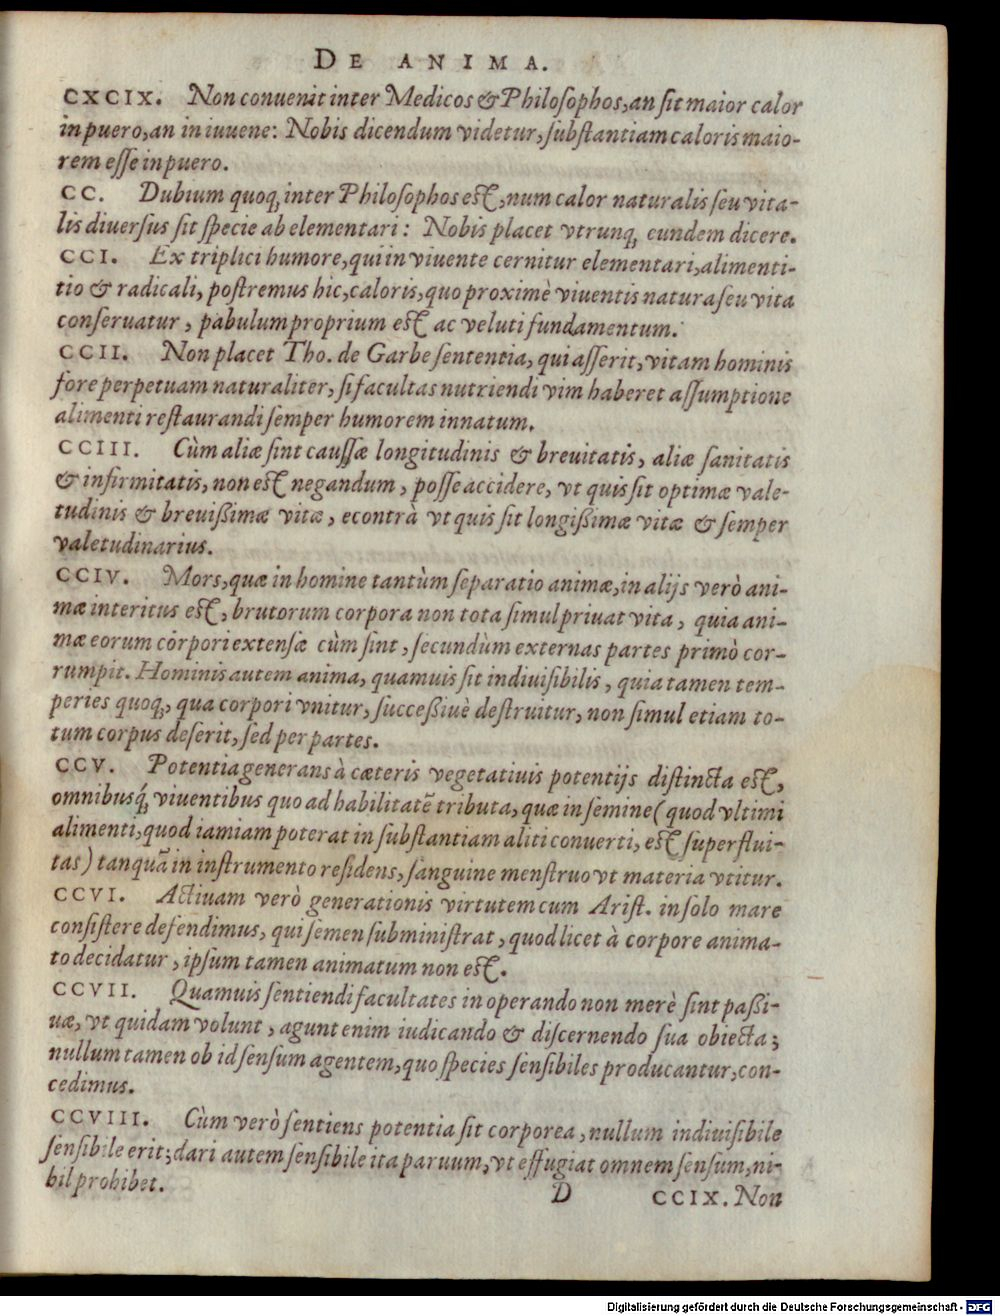 DE ANIMA.
CXCIX. Non conuenit inter Medicos & Philosophos, an sit maior calor
in puero, an in iuuene: Nobis dicendum videtur, substantiam caloris maio-
rem esse in puero.
CC. Dubium quoq; inter Philosophos est, num calor naturalis seu vita-
lis diuersus sit specie ab elementari: Nobis placet vtrunq; eundem dicere.
CCI. Ex triplici humore, qui in viuente cernitur elementari, alimenti-
tio & radicali, postremus hic, caloris, quo proximè viuentis natura seu vita
conseruatur, pabulum proprium est ac veluti fundamentum.
CCII. Non placet Tho. de Garbe sententia, qui asserit, vitam hominis
fore perpetuam naturaliter, si facultas nutriendi vim haberet assumptione
alimenti restaurandi semper humorem innatum.
CCIII. Cùm aliæ sint caussæ longitudinis & breuitatis, aliæ sanitatis
& infirmitatis, non est negandum, posse accidere, vt quis sit optimæ vale-
tudinis & breuißimæ vitæ, econtrà vt quis sit longißimæ vitæ & semper
valetudinarius.
CCIV. Mors, quæ in homine tantùm separatio animæ, in alijs verò ani-
mæ interitus est, brutorum corpora non tota simul priuat vita, quia ani-
mæ eorum corpori extensæ cùm sint, secundùm externas partes primò cor-
rumpit. Hominis autem anima, quamuis sit indiuisibilis, quia tamen tem-
peries quoq;, qua corpori vnitur, succeßiuè destruitur, non simul etiam to-
tum corpus deserit, sed per partes.
CCV. Potentia generans à cæteris vegetatiuis potentijs distincta est,
omnibusq́; viuentibus quo ad habilitatē tributa, quæ in semine (quod vltimi
alimenti, quod iamiam poterat in substantiam aliti conuerti, est superflui-
tas) tanquā in instrumento residens, sanguine menstruo vt materia vtitur.
CCVI. Actiuam verò generationis virtutem cum Arist. in solo mare
consistere defendimus, qui semen subministrat, quod licet à corpore anima-
to decidatur, ipsum tamen animatum non est.
CCVII. Quamuis sentiendi facultates in operando non merè sint paßi-
uæ, vt quidam volunt, agunt enim iudicando & discernendo sua obiecta;
nullum tamen ob id sensum agentem, quo species sensibiles producantur, con-
cedimus.
CCVIII. Cùm verò sentiens potentia sit corporea, nullum indiuisibile
sensibile erit; dari autem sensibile ita paruum, vt effugiat omnem sensum, ni-
hil prohibet.
D CCIX. Non
Digitalisierung gefördert durch die Deutsche Forschungsgemeinschaft - DFG